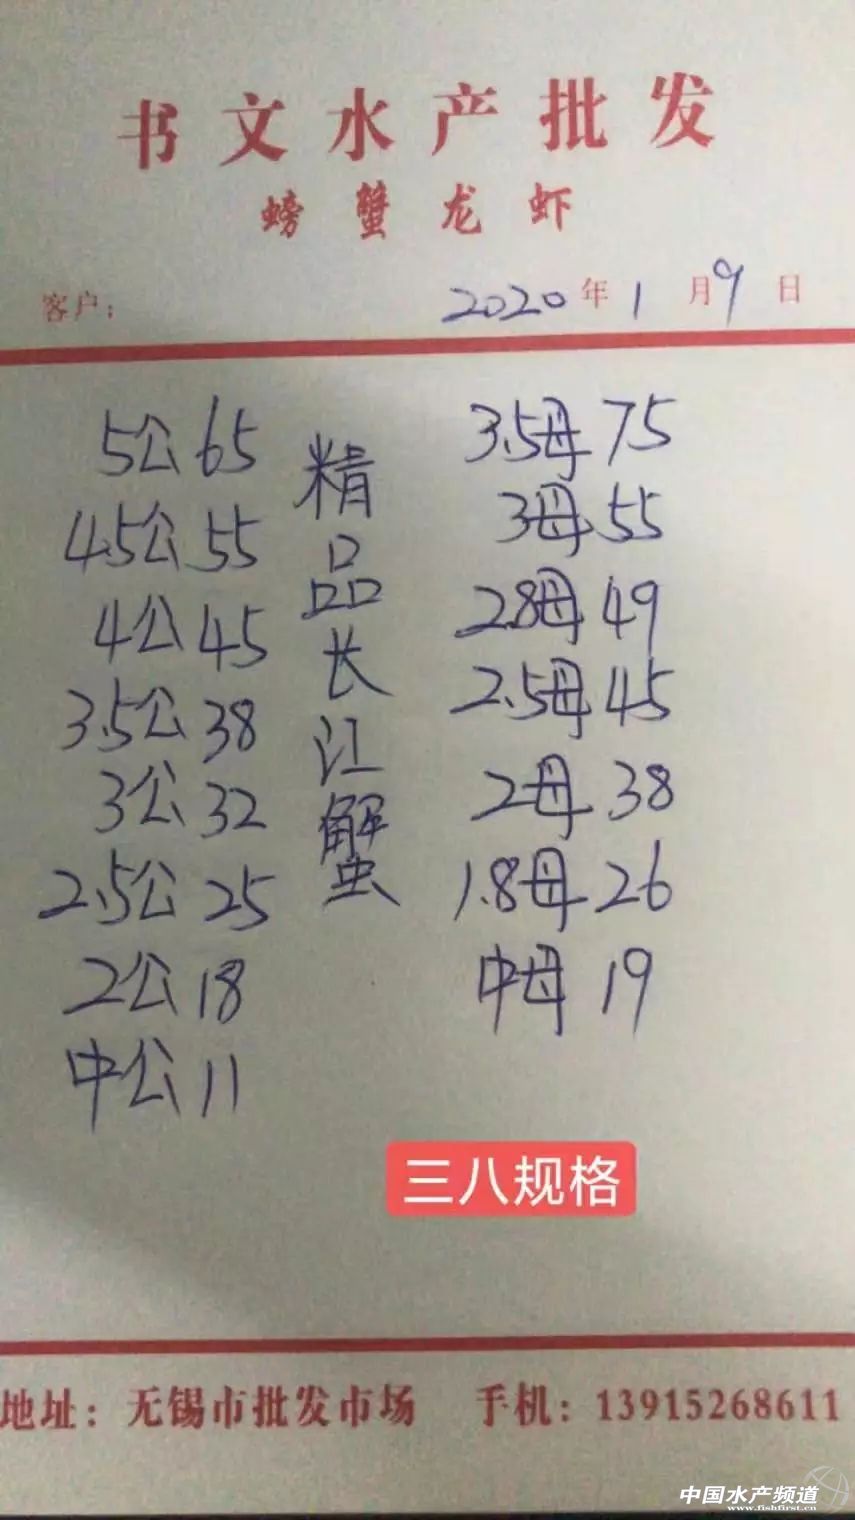 书文水产批发
螃蟹龙虾
客户: 2020年1月9日
5公65
4.5公55
4公45
3.5公38
3公32
2.5公25
2公18
中公11
精品长江蟹
3.5母75
3母55
2.8母49
2.5母45
2母38
1.8母26
中母19
三八规格
地址: 无锡市批发市场 手机: 13915268611
中国水产频道
www.fishfirst.cn